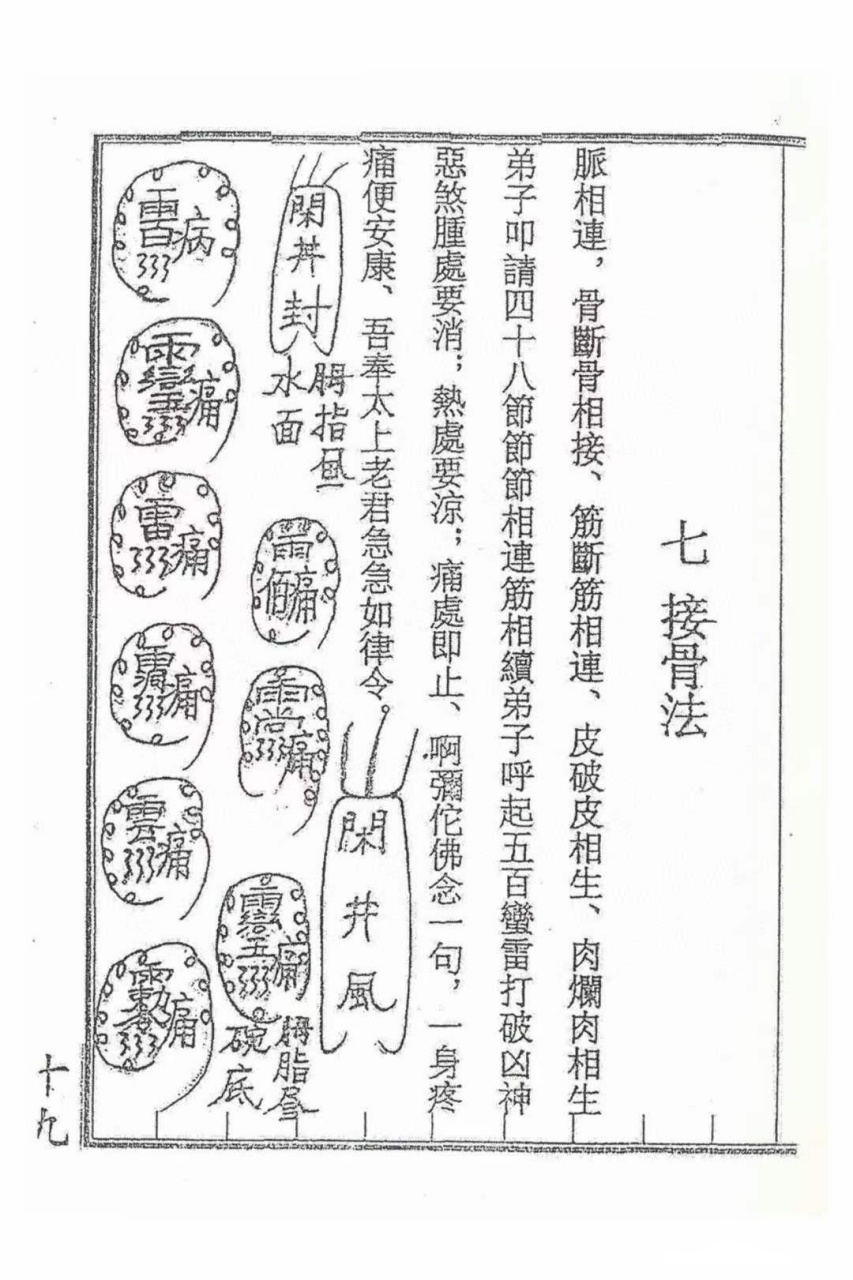 七 接骨法
脈相連，骨斷骨相接、筋斷筋相連、皮破皮相生、肉爛肉相生
弟子叩請四十八節節節相連筋相續弟子呼起五百蠻雷打破凶神
惡煞腫處要消；熱處要涼；痛處即止、啊彌佗佛念一句，一身疼
痛便安康、吾奉太上老君急急如律令。
井風
井封
水面
碗底
痛
痛
痛
病
痛
雷痛
痛
痛
痛
十九